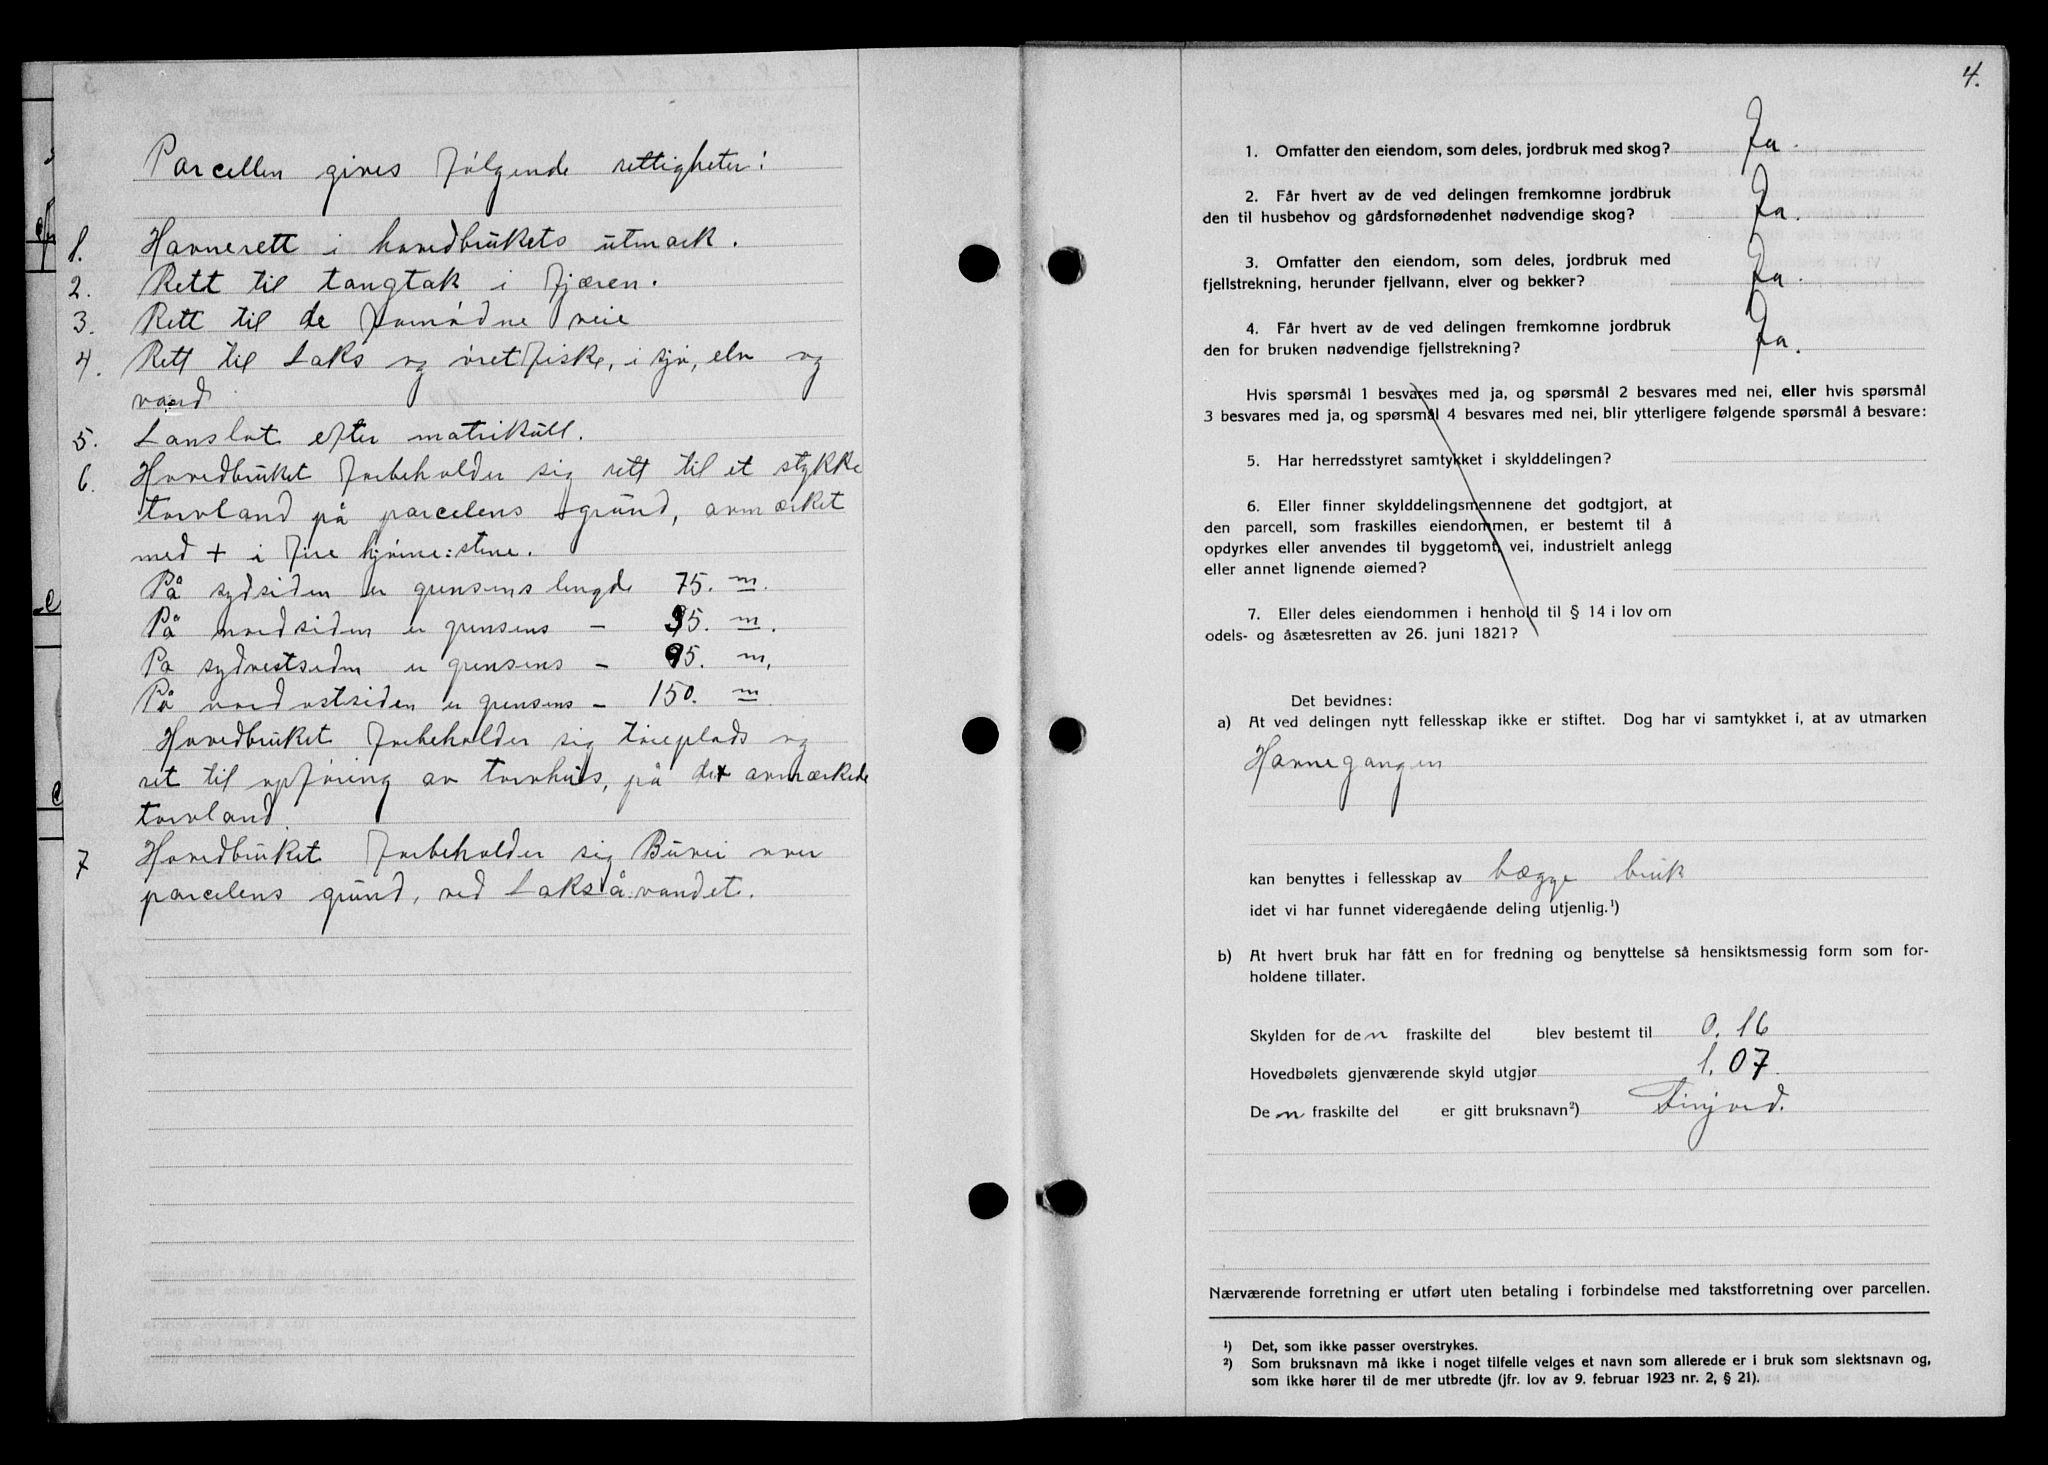 Parcellen gives følgende rettigheter:
1. Havnerett i hovedbrukets utmark.
2. Rett til tangtak i fjæren.
3. Rett til de fornødne veie
4. Rett til Laks og øret fiske, i sjø, elv og
vand
5. Lanslot efter matrikull.
6. Hovedbruket forbeholder sig rett til et stykke
torvland på parcelens grund, avmærket
med + i fire hjørne:stene.
På sydsiden er grensens lengde 75. m.
På nordsiden er grensens – 35. m.
På sydvestsiden er grensens – 95. m.
På nordostsiden er grensens – 150. m.
Hovedbruket forbeholder sig tøreplads og
ret til opføring av torvhus, på det avmærkede
torvland
7 Hovedbruket forbeholder sig Buvei over
parcelens grund, ved Laksåvandet.
4.
1. Omfatter den eiendom, som deles, jordbruk med skog? Ja.
2. Får hvert av de ved delingen fremkomne jordbruk
den til husbehov og gårdsfornødenhet nødvendige skog? Ja.
3. Omfatter den eiendom, som deles, jordbruk med
fjellstrekning, herunder fjellvann, elver og bekker? Ja.
4. Får hvert av de ved delingen fremkomne jordbruk
den for bruken nødvendige fjellstrekning? Ja.
Hvis spørsmål 1 besvares med ja, og spørsmål 2 besvares med nei, eller hvis spørsmål
3 besvares med ja, og spørsmål 4 besvares med nei, blir ytterligere følgende spørsmål å besvare:
5. Har herredsstyret samtykket i skylddelingen?
6. Eller finner skylddelingsmennene det godtgjort, at
den parcell, som fraskilles eiendommen, er bestemt til å
opdyrkes eller anvendes til byggetomt, vei, industrielt anlegg
eller annet lignende øiemed?
7. Eller deles eiendommen i henhold til § 14 i lov om
odels- og åsætesretten av 26. juni 1821?
Det bevidnes:
a) At ved delingen nytt fellesskap ikke er stiftet. Dog har vi samtykket i, at av utmarken
Havnegangen
kan benyttes i fellesskap av bægge bruk
idet vi har funnet videregående deling utjenlig.¹)
b) At hvert bruk har fått en for fredning og benyttelse så hensiktsmessig form som for-
holdene tillater.
Skylden for den fraskilte del blev bestemt til 0.16
Hovedbølets gjenværende skyld utgjør 1.07
Den fraskilte del er gitt bruksnavn²)
Nærværende forretning er utført uten betaling i forbindelse med takstforretning over parcellen.
¹) Det, som ikke passer overstrykes.
²) Som bruksnavn må ikke i noget tilfelle velges et navn som allerede er i bruk som slektsnavn og,
som ikke hører til de mer utbredte (jfr. lov av 9. februar 1923 nr. 2, § 21).